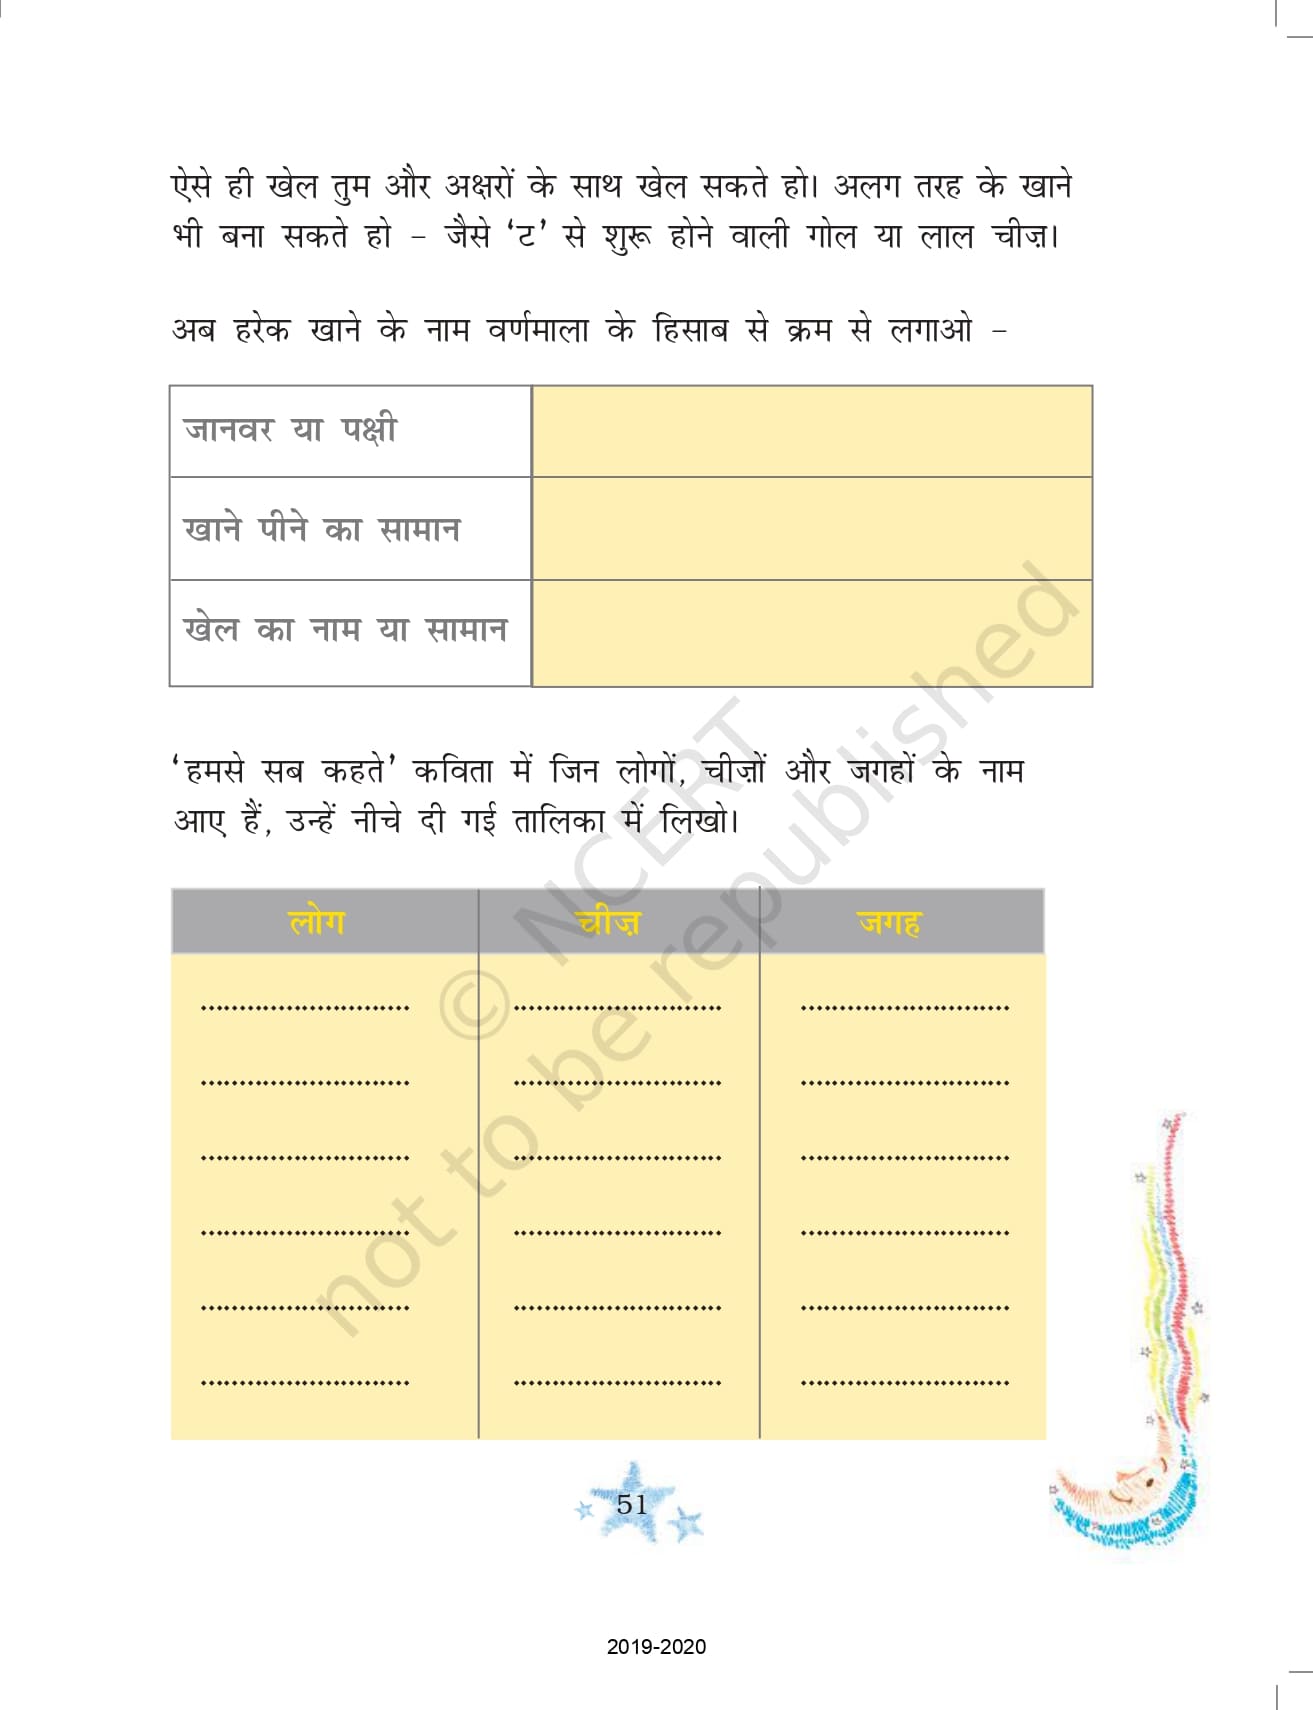 ऐसे ही खेल तुम और अक्षरों के साथ खेल सकते हो। अलग तरह के खाने
भी बना सकते हो – जैसे ‘ट’ से शुरू होने वाली गोल या लाल चीज़।
अब हरेक खाने के नाम वर्णमाला के हिसाब से क्रम से लगाओ –
जानवर या पक्षी
खाने पीने का सामान
खेल का नाम या सामान
‘हमसे सब कहते’ कविता में जिन लोगों, चीज़ों और जगहों के नाम
आए हैं, उन्हें नीचे दी गई तालिका में लिखो।
लोग चीज़ जगह
........................... ........................... ...........................
........................... ........................... ...........................
........................... ........................... ...........................
........................... ........................... ...........................
........................... ........................... ...........................
........................... ........................... ...........................
© NCERT
not to be republished
51
2019-2020